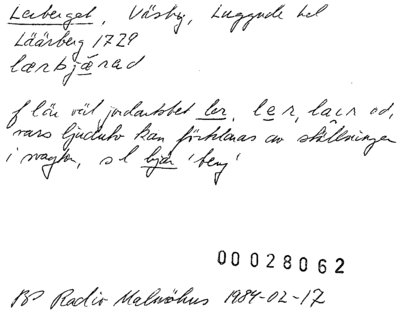 Lerberget, Väsby, Luggude hd
Läärberg 1729
lærbjärad
f län väl jordartsbet ler, ler, lacr od,
vars ljudutv kan förklaras av ställningen
i svagton, s l bjär 'berg'
00028062
BP Radio Malmöhus 1984-02-17